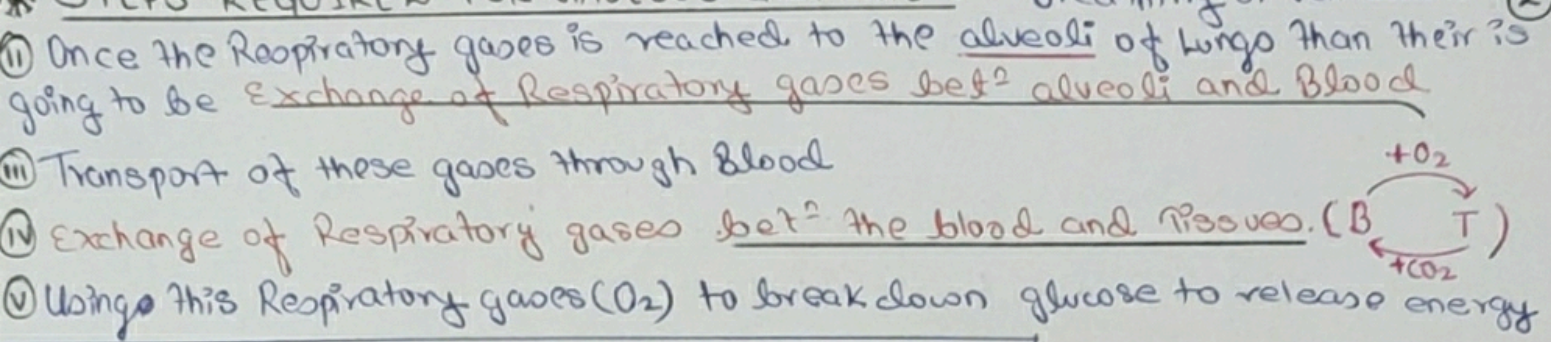 (ii) Once the Respiratory gases is reached to the alveoli of Lungs than their is
going to be Exchange of Respiratory gases betⁿ alveoli and Blood
(iii) Transport of these gases through Blood
+O₂
(iv) Exchange of Respiratory gases betⁿ the blood and Tissues. (B T)
+CO₂
(v) Using this Respiratory gases (O₂) to breakdown glucose to release energy